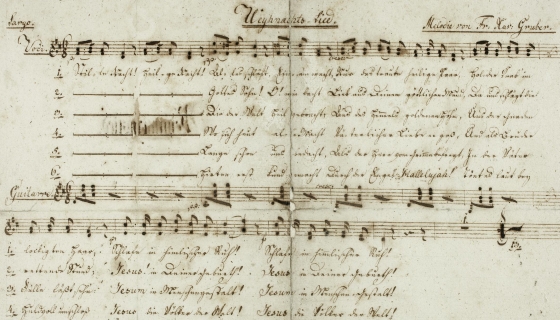 Largo. Weyhnachts-Lied. Melodie von Fr. Xav. Gruber.
Voci.
1. Stille Nacht! Heil'ge Nacht! Alles schläft. Einsam wacht. Nur das traute heilige Paar. Holder Knab' im
2. Gottes Sohn! O! wie lacht Lieb' aus deinem göttlichen Mund,
3. Die der Welt Heil gebracht, Aus des Himmels goldenen Höh'n, Aus der Gnaden
4. Wo sich heut alle Macht Väterlicher Liebe ergoß, Und als Bruder
5. Lange schon uns bedacht, Als der Herr vom Grimme befreyt, In der Väter
6. Hirten erst kund gemacht durch der Engel Hallelujah!
Guitarre.
1. lockigten Haar; Schlafe in himlischer Ruh! Schlafe in himlischer Ruh!
2. rettende Stund, Jesus in deiner Geburt! Jesus in deiner Geburt!
3. Fülle läßt seh'n: Jesum in Menschengestalt! Jesum in Menschengestalt!
4. Huldvoll umschloß Jesus die Völker der Welt! Jesus die Völker der Welt!